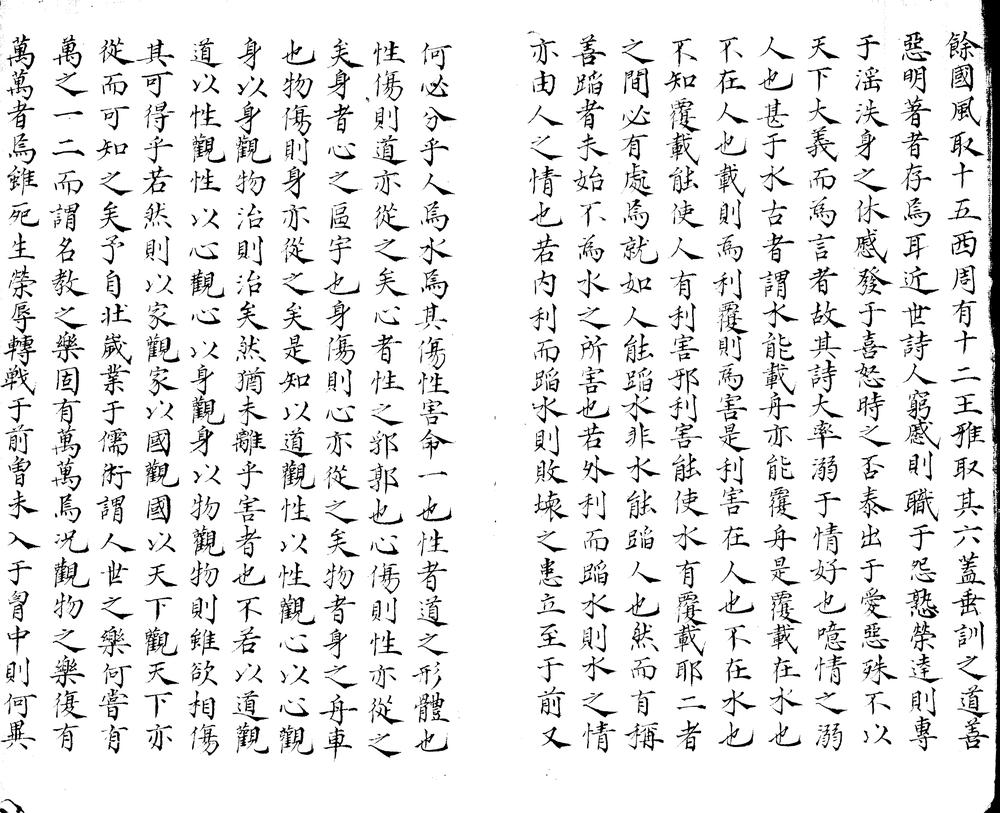 餘國風取十五西周有十二王雅取其六蓋垂訓之道善
惡明著者存焉耳近世詩人窮慼則職于怨憝榮達則專
于滛泆身之休慼發于喜怒時之否泰出于愛惡殊不以
天下大義而為言者故其詩大率溺于情好也噫情之溺
人也甚于水古者謂水能載舟亦能覆舟是覆載在水也
不在人也載則為利覆則為害是利害在人也不在水也
不知覆載能使人有利害邪利害能使水有覆載耶二者
之間必有處焉就如人能蹈水非水能蹈人也然而有稱
善蹈者未始不為水之所害也若外利而蹈水則水之情
亦由人之情也若内利而蹈水則敗壞之患立至于前又
何必分乎人焉水焉其傷性害命一也性者道之形體也
性傷則道亦從之矣心者性之郛郭也心傷則性亦從之
矣身者心之區宇也身傷則心亦從之矣物者身之舟車
也物傷則身亦從之矣是知以道觀性以性觀心以心觀
身以身觀物治則治矣然猶未離乎害者也不若以道觀
道以性觀性以心觀心以身觀身以物觀物則雖欲相傷
其可得乎若然則以家觀家以國觀國以天下觀天下亦
從而可知之矣予自壯歲業于儒術謂人世之樂何嘗有
萬之一二而謂名教之樂固有萬萬焉况觀物之樂復有
萬萬者焉雖死生榮辱轉戰于前曽未入于胷中則何異